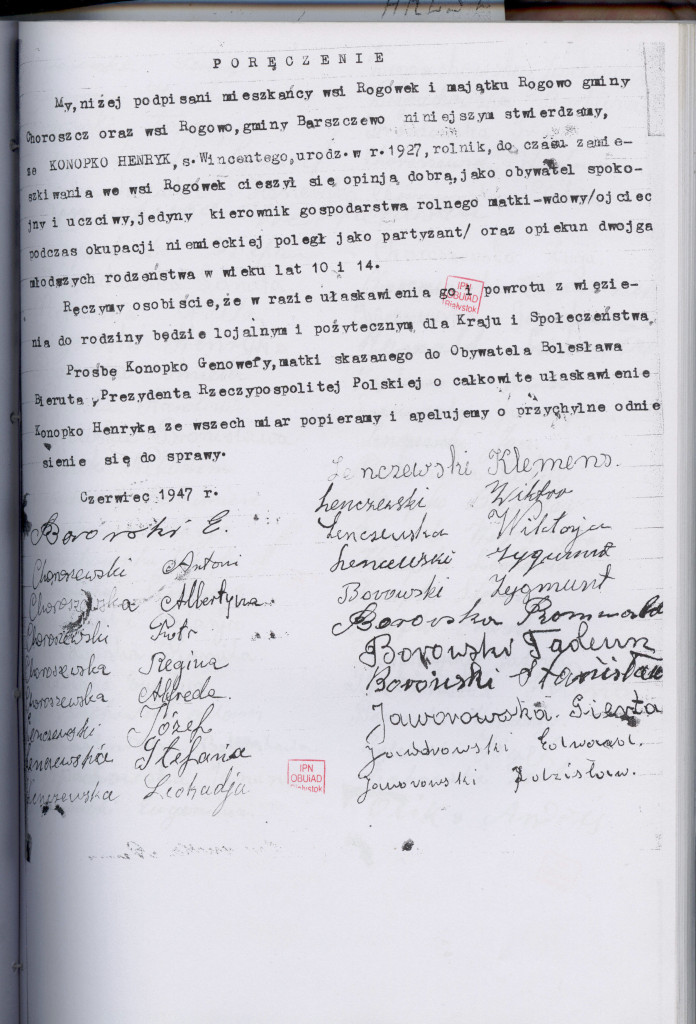 PORĘCZENIE
My, niżej podpisani mieszkańcy wsi Rogówek i majątku Rogowo gminy
Choroszcz oraz wsi Rogowo, gminy Barszczewo niniejszym stwierdzamy,
że KONOPKO HENRYK, s. Wincentego, urodz. w r. 1927, rolnik, do czasu zamie-
szkiwania we wsi Rogówek cieszył się opinją dobrą, jako obywatel spoko-
jny i uczciwy, jedyny kierownik gospodarstwa rolnego matki-wdowy/ojciec
podczas okupacji niemieckiej poległ jako partyzant/ oraz opiekun dwojga
młodszych rodzeństwa w wieku lat 10 i 14.
Ręczymy osobiście, że w razie ułaskawienia go i powrotu z więzie-
nia do rodziny będzie lojalnym i pożytecznym dla Kraju i Społeczeństwa
Prośbę Konopko Genowefy, matki skazanego do Obywatela Bolesława
Bieruta, Prezydenta Rzeczypospolitej Polskiej o całkowite ułaskawienie
Konopko Henryka ze wszech miar popieramy i apelujemy o przychylne odnie
sienie się do sprawy.
Czerwiec 1947 r.
Borowski E.
Choroszewski Antoni
Albertyna
Choroszewski Piotr
Choroszewska Regina
Choroszewska Alfreda.
Lenczewski Józef
Lenczewska Stefania
Lenczewska Leokadja
Lenczewski Klemens.
Lenczewski Wiktor
Lenczewska Wiktorja
Lenczewski Zygmunt
Borowski Zygmunt
Borowska Romualda
Borowski Tadeusz
Borowski Stanisław
Jaworowska
Jaworowski Edward.
Jaworowski Zdzisław.
IPN
OBUiAD
Białystok
IPN
OBUiAD
Białystok